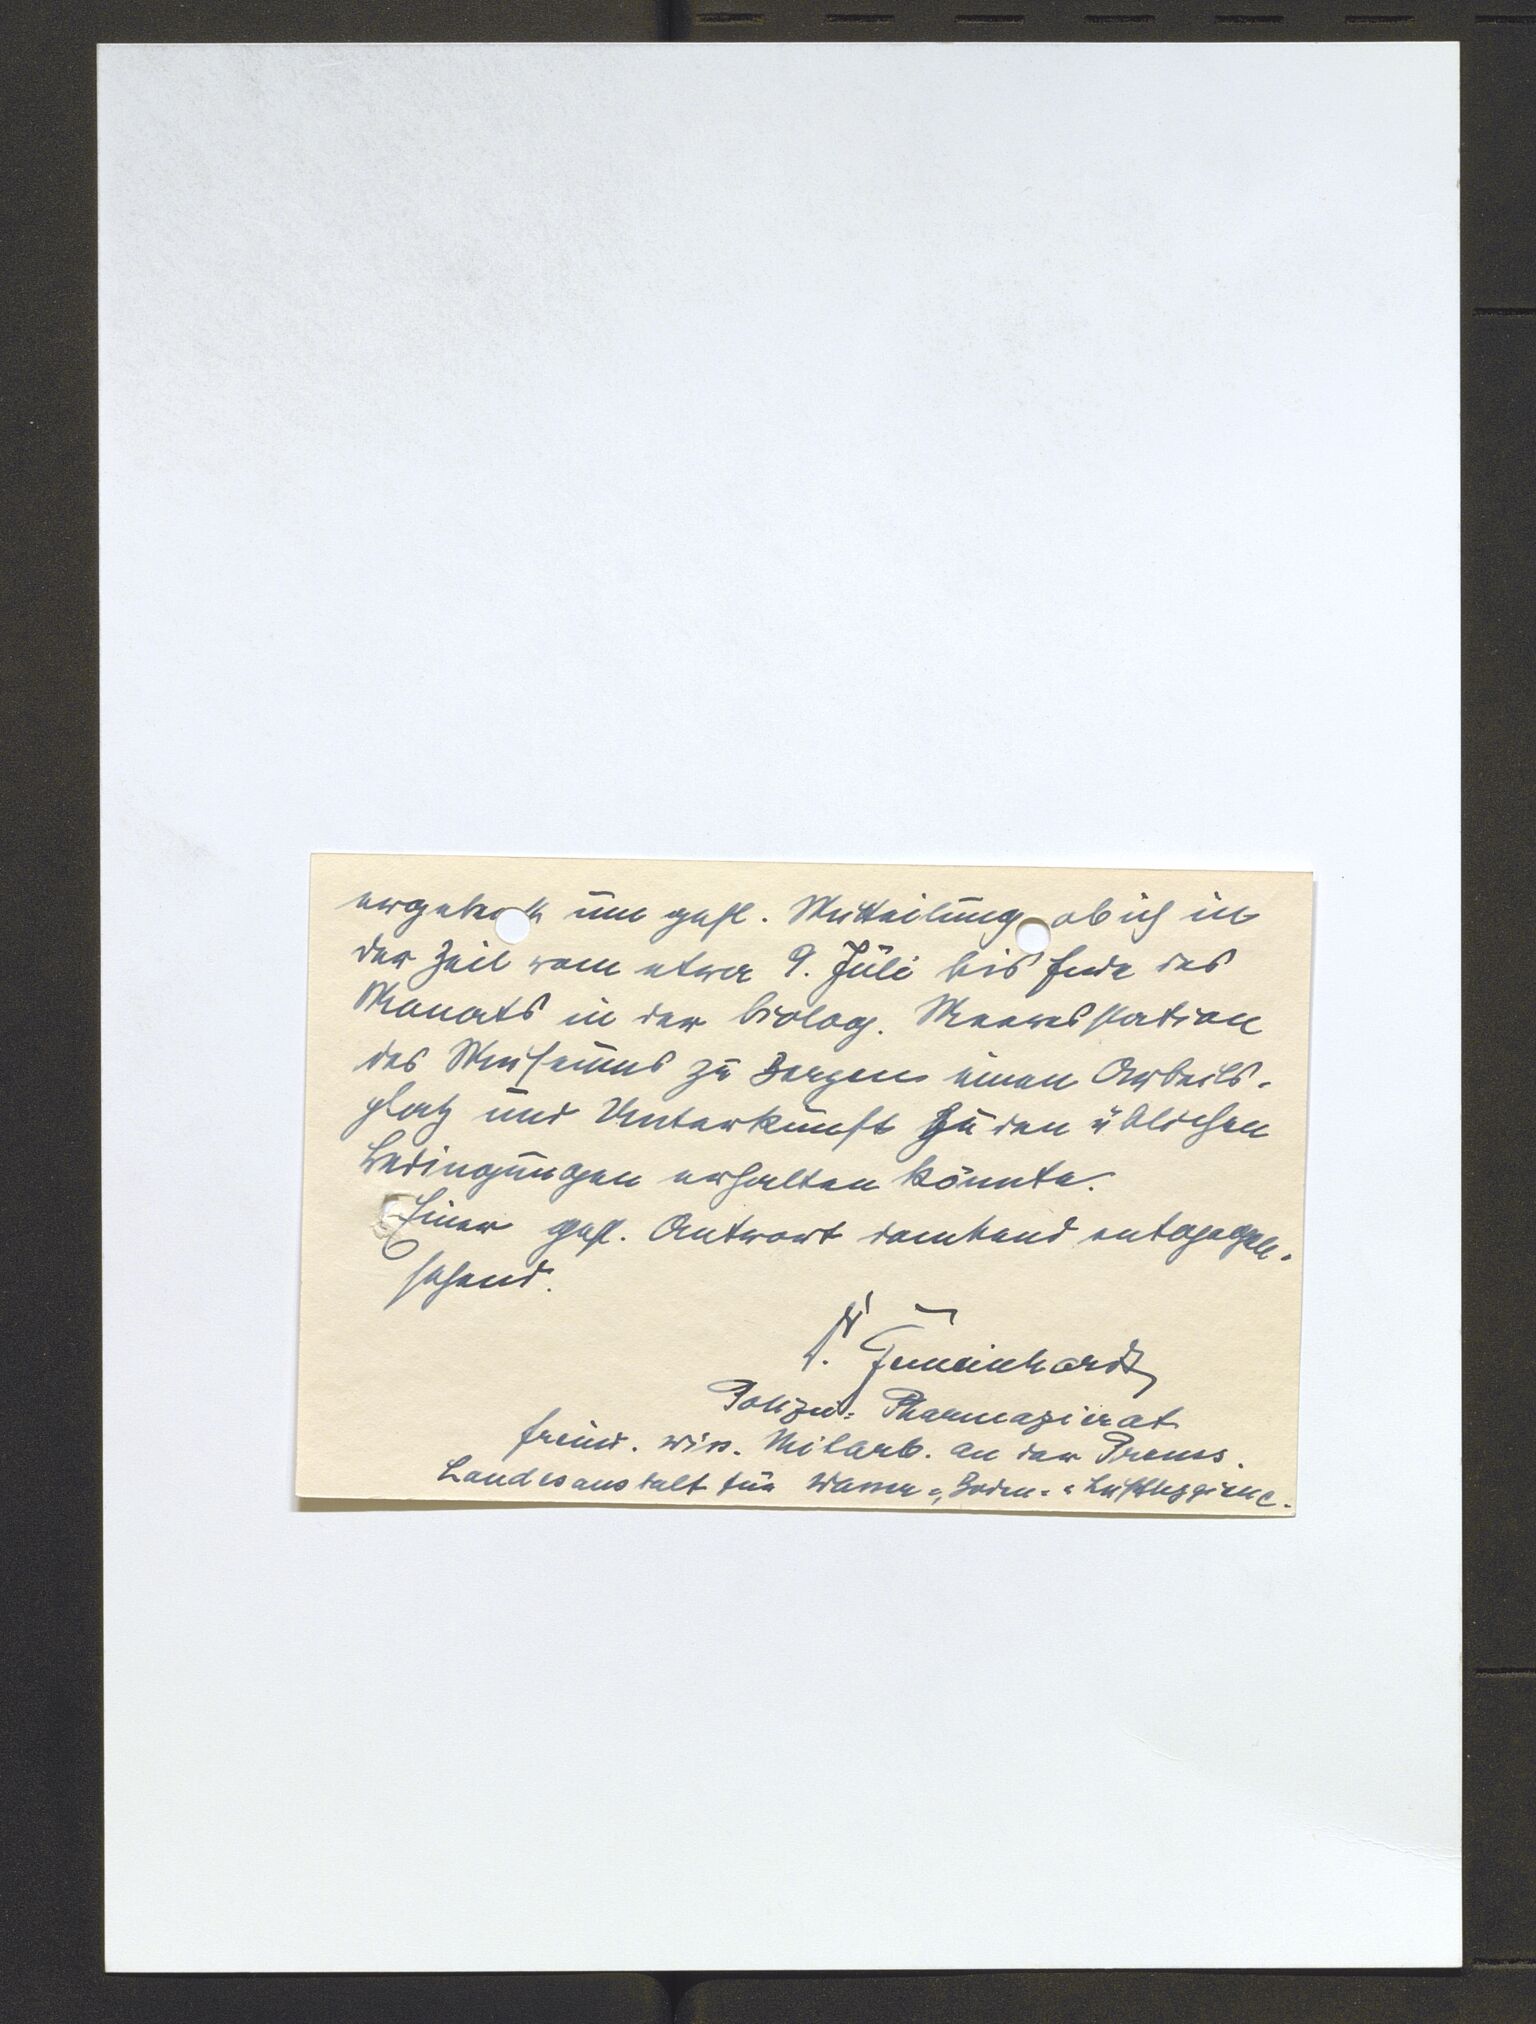 ergebenst um gefl. Mitteilung ob ich in
der Zeit vom etwa 9. Juli bis Ende des
Monats in der biolog. Meeresstation
des Museums zu Bergen einen Arbeits-
platz und Unterkunft zu den üblichen
Bedingungen erhalten könnte.
Einer gefl. Antwort dankend entgegen-
sehend.
K. Gemeinhardt
Polizei= Pharmazierat
freiw. wiss. Mitarb. an der Preuss.
Landesanstalt für Wasser=, Boden= u Lufthygiene.